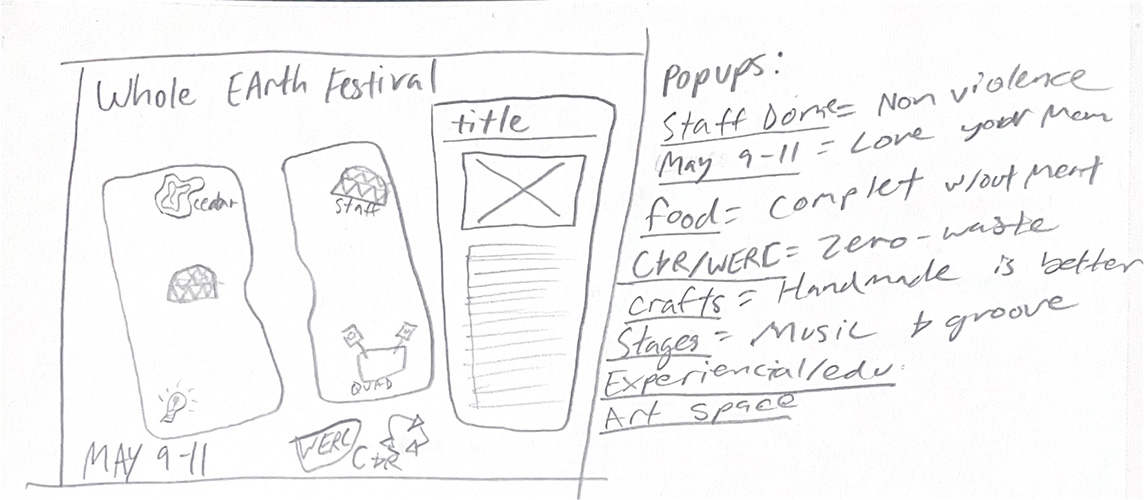 Whole EArth Festival
title
cedar
Staff
QUAD
WERC
C+R
MAY 9-11
Popups:
Staff Dome = Non violence
May 9-11 = Love your Mom
food = Complet w/out meat
C+R/WERC = Zero-waste
crafts = Handmade is better
Stages = Music + groove
Experiencial/edu.
Art space